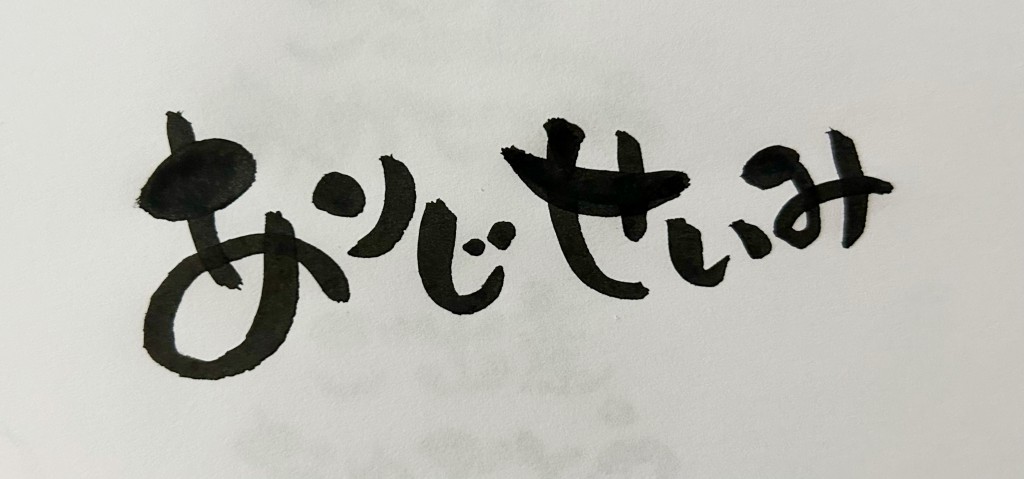 ありじせいみ